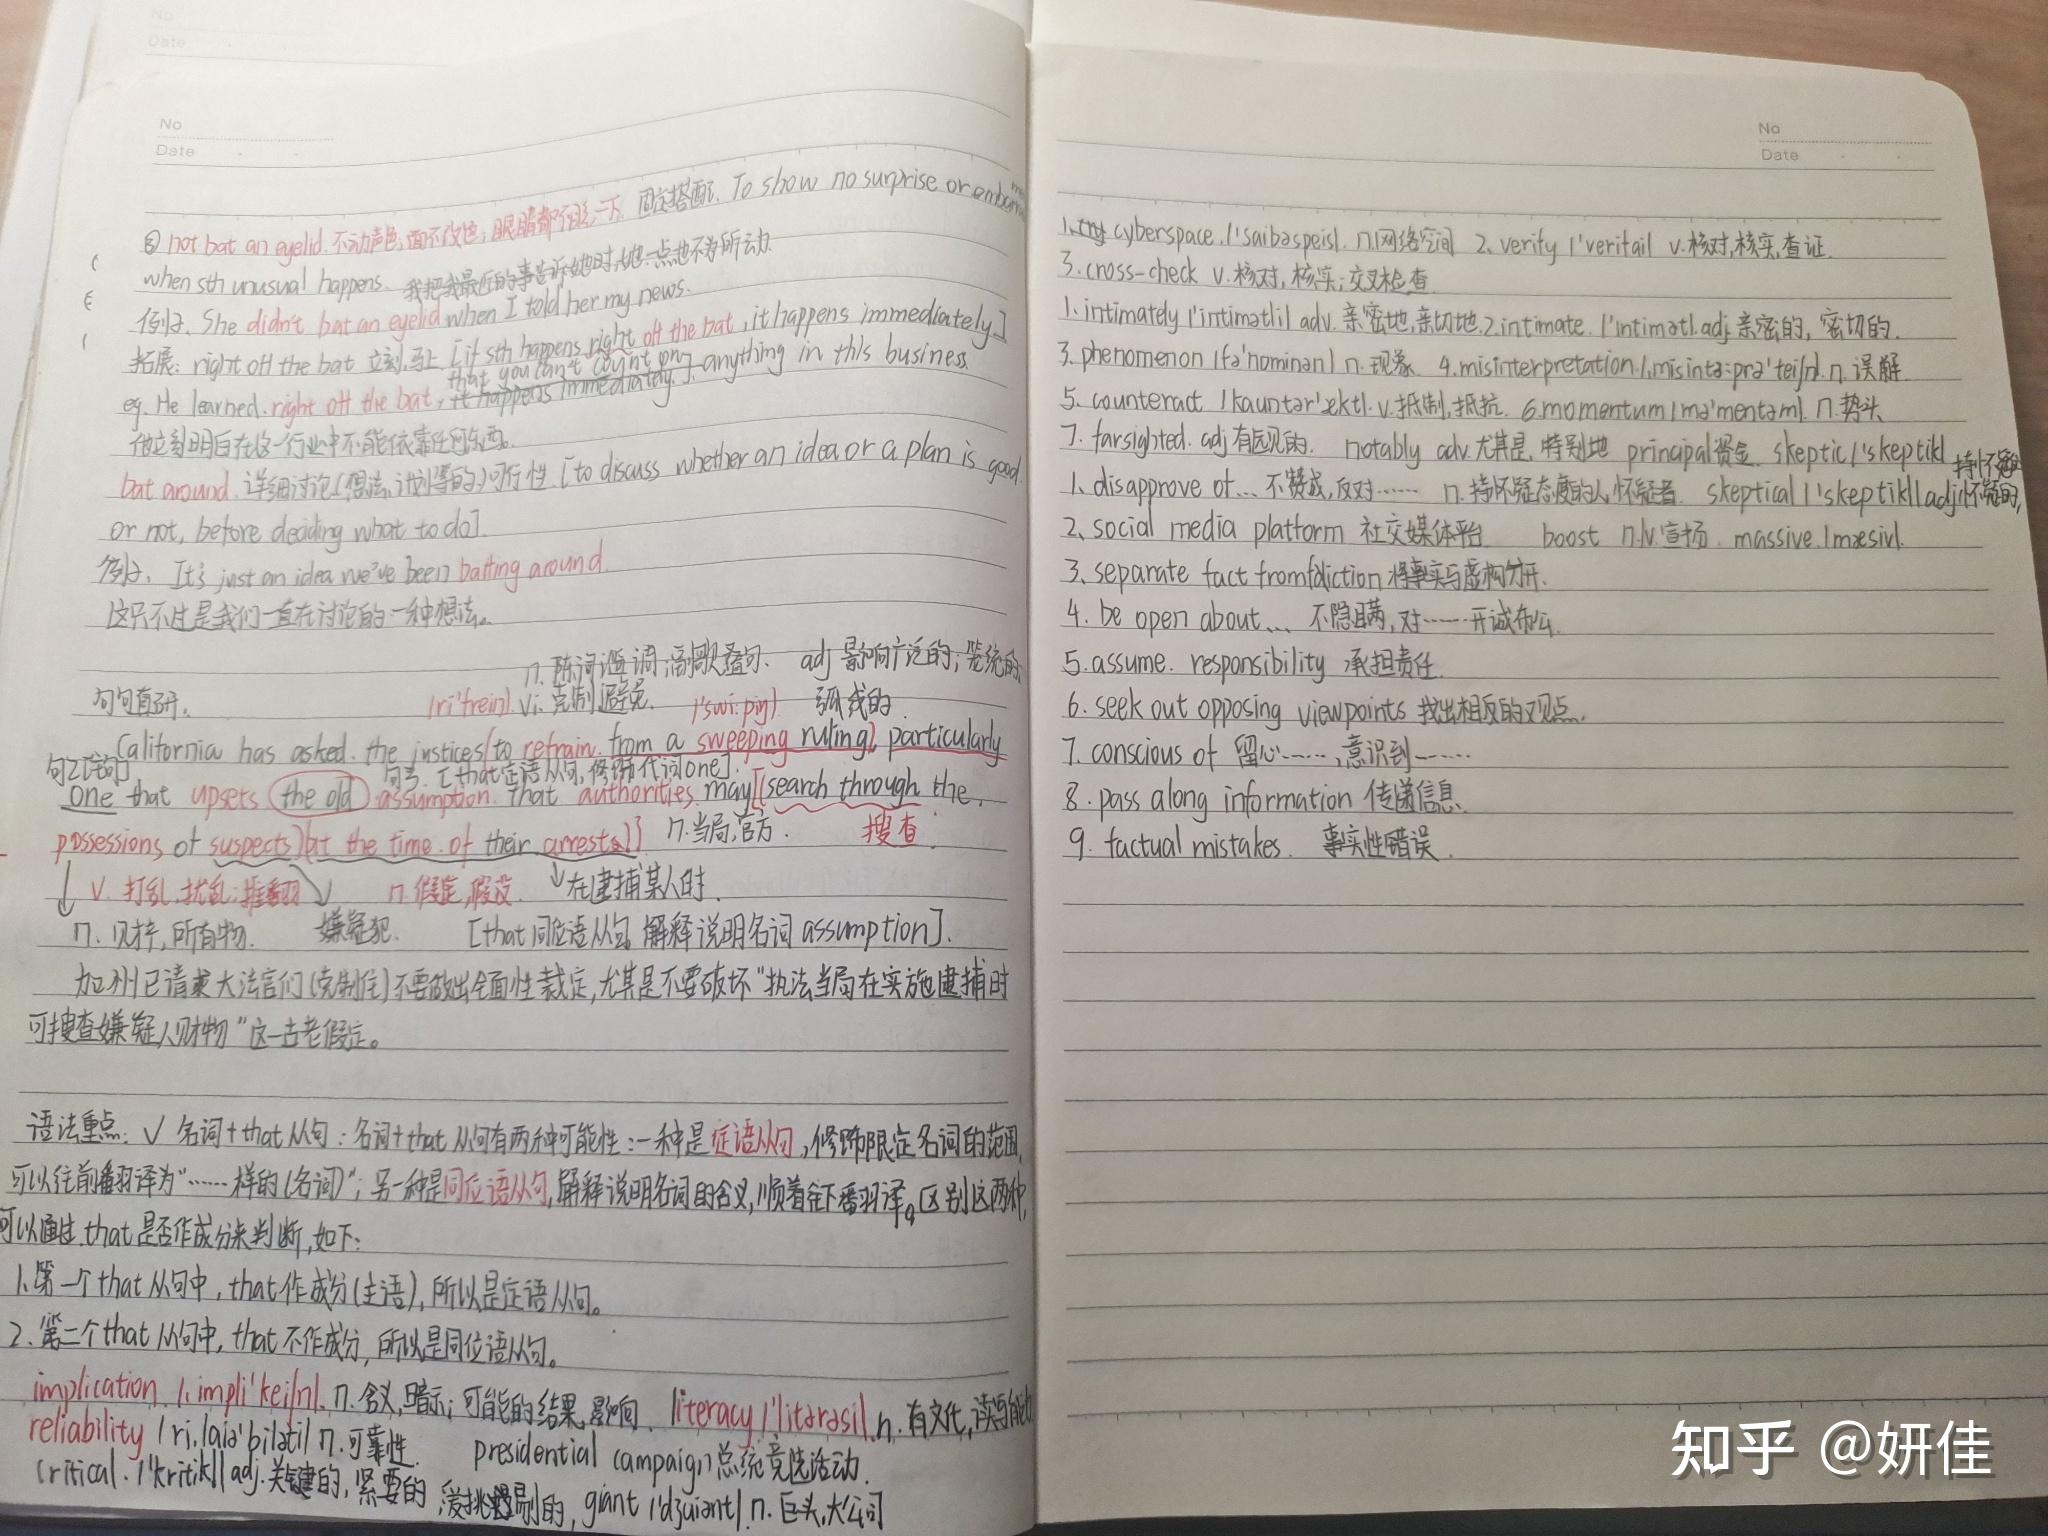 No
Date
③ not bat an eyelid. 不动声色;面不改色;眼睛都不眨一下. 固定搭配. To show no surprise or
when sth unusual happens. 我把我最近的事告诉她时,她一点也不为所动.
例子. She didn't bat an eyelid when I told her my news.
拓展: right off the bat 立刻,马上 [if sth happens right off the bat, it happens immediately.]
that you can't count on
eg. He learned right off the bat, it happens immediately.]. anything in this business.
他立刻明白在这一行业中不能依靠任何东西。
bat around. 详细讨论(想法、计划等的)可行性. [to discuss whether an idea or a plan is good
or not, before deciding what to do].
例子. It's just an idea we've been batting around.
这只不过是我们一直在讨论的一种想法。
n. 陈词滥调;副歌,叠句. adj 影响广泛的;笼统的
句句有研. /ri'frein/. vi. 克制,避免. /'swi:piŋ/ 弧线的
California has asked the justices (to refrain from a sweeping ruling) particularly
句2[主句] 句3. [that定语从句,修饰代词one].
one that upsets the old assumption that authorities may [(search through the
possessions of suspects)(at the time of their arrests)] n.当局,官方. 搜查
v. 打乱,扰乱;推翻 n. 假定,假设. 在逮捕某人时.
n. 财产,所有物. 嫌疑犯. [that同位语从句,解释说明名词 assumption].
加州已请求大法官们(克制住)不要做出全面性裁定,尤其是不要破坏“执法当局在实施逮捕时
可搜查嫌疑人财物”这一古老假定。
语法重点: √ 名词+that从句:名词+that从句有两种可能性:一种是定语从句,修饰限定名词的范围,
可以往前翻译为“……样的(名词)”;另一种是同位语从句,解释说明名词的含义,顺着往下翻译。区别这两种,
可以通过 that是否作成分来判断,如下:
1.第一个that从句中,that作成分(主语),所以是定语从句。
2.第二个that从句中,that不作成分,所以是同位语从句。
implication /ˌimpli'keiʃn/. n. 含义,暗示;可能的结果,影响. literacy /'litərəsi/. n. 有文化,读写能力
reliability /riˌlaiə'biləti/ n.可靠性. presidential campaign 总统竞选活动.
critical. /'kritikl/ adj.关键的,紧要的,爱挑剔的, giant /'dʒaiənt/. n. 巨头,大公司
No
Date
1. cyberspace. /'saibəspeis/. n.网络空间 2. verify /'verifai/ v.核对,核实,查证.
3. cross-check v.核对,核实;交叉检查
1. intimately /'intimətli/ adv. 亲密地,亲切地. 2. intimate. /'intimət/. adj 亲密的,密切的.
3. phenomenon /fə'nominən/ n. 现象 4. misinterpretation /ˌmisintə:prə'teiʃn/. n. 误解
5. counteract /ˌkauntər'ækt/. v.抵制,抵抗. 6. momentum /mə'mentəm/. n.势头
7. farsighted. adj有远见的. notably adv.尤其是,特别地 principal资金. skeptic /'skeptik/
1. disapprove of... 不赞成,反对…… n. 持怀疑态度的人,怀疑者. skeptical /'skeptikl/ adj怀疑的,
持怀疑
2. social media platform 社交媒体平台 boost n./v.宣扬. massive /mæsiv/.
3. separate fact from fiction 将事实与虚构分开.
4. be open about... 不隐瞒,对……开诚布公.
5. assume responsibility 承担责任.
6. seek out opposing viewpoints 找出相反的观点.
7. conscious of 留心……,意识到……
8. pass along information 传递信息.
9. factual mistakes. 事实性错误.
知乎 @妍佳